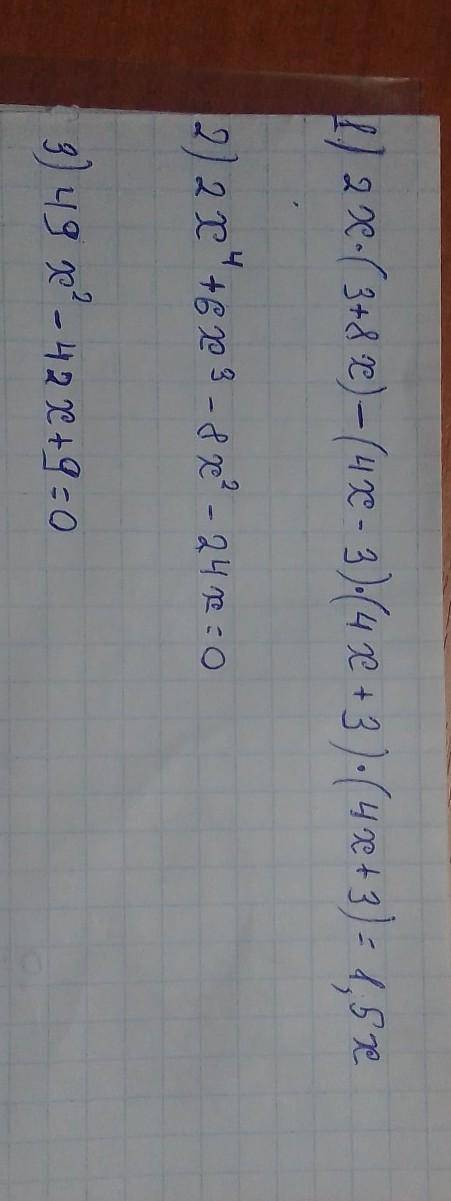 1) 2x·(3+8x)-(4x-3)·(4x+3)·(4x+3)=1,5x
2) 2x⁴+6x³-8x²-24x=0
3) 49x²-42x+9=0